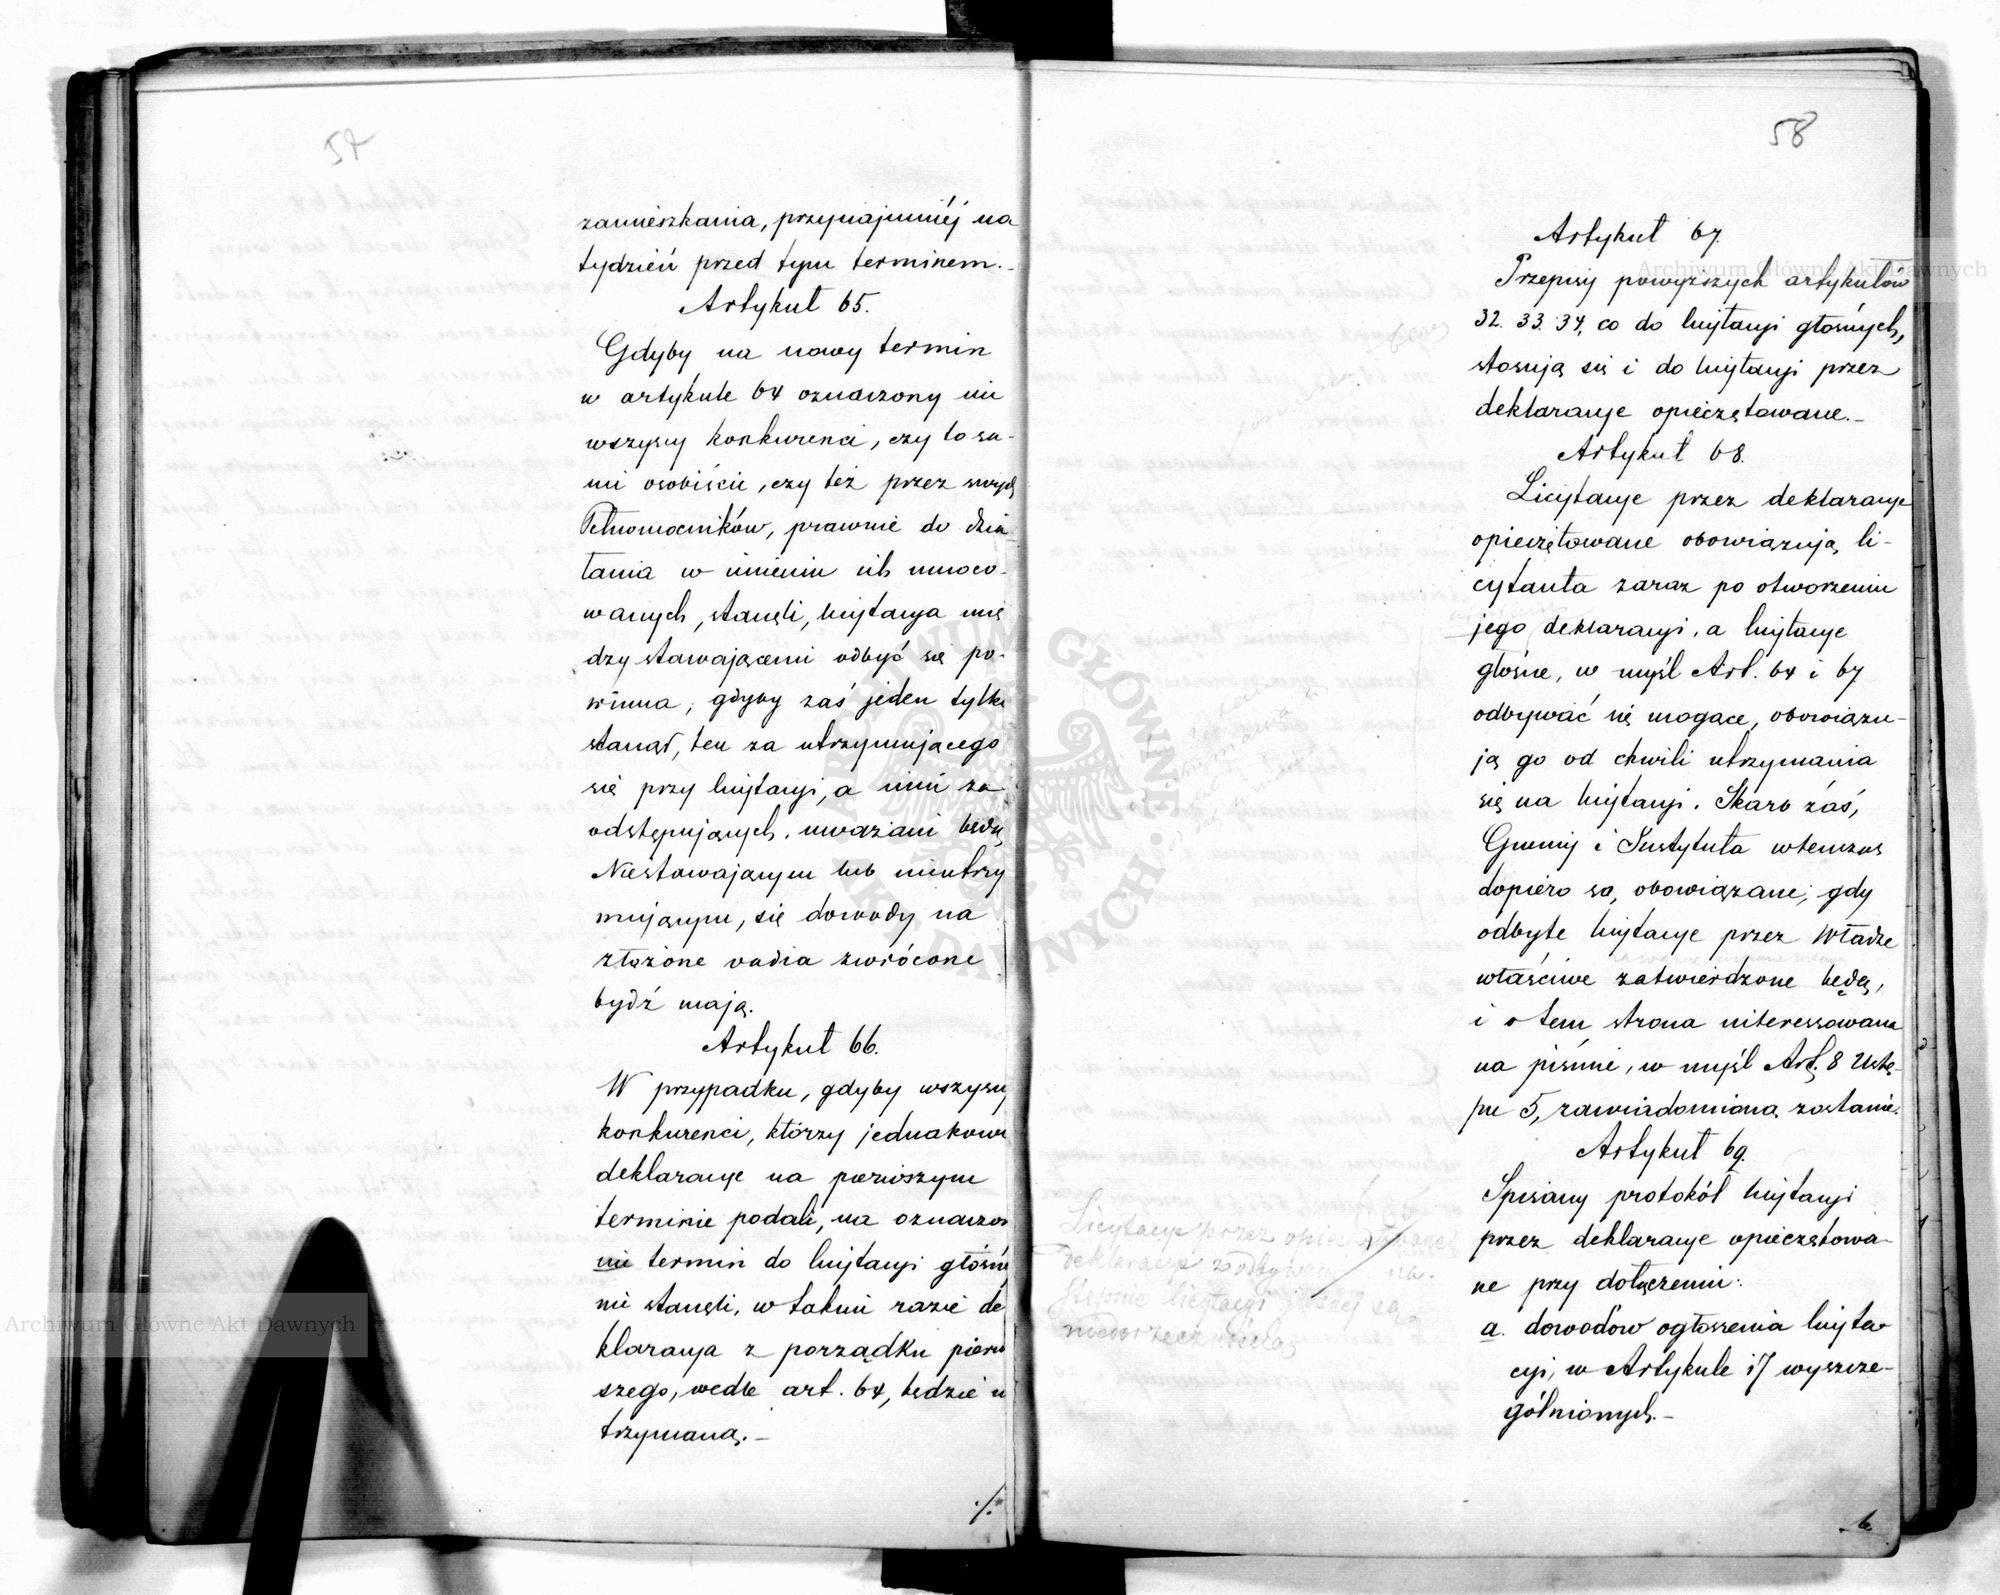 57
zamieszkania, przynajmniéj na
tydzień przed tym terminem.-
Artykuł 65.
Gdyby na nowy termin
w artykule 64 oznaczony nie
wszyscy konkurenci, czy to sa-
mi osobiście, czy też przez swych
Pełnomocników, prawnie do dzia
łania w imieniu ich umoco-
wanych, stanęli, licytacya mię
dzy stawającemi odbyć się po-
winna, gdyby zaś jeden tylko
stanął, ten za utrzymującego
się przy licytacyi, a inni za
odstępujących, uważani będą
Niestawającym lub nieutrzy
mującym, się dowody na
złożone vadia zwrócone
bydź mają.
Artykuł 66.
W przypadku, gdyby wszyscy
konkurenci, którzy jednakowe
deklaracye na pierwszym
terminie podali, na oznaczo
nie termin do licytacyi głośnéj
nie stanęli, w takim razie de
klaracya z porządku pierw
szego, wedle art. 64, będzie u
trzymaną.-
./.
58
Artykuł 67.
Przepisy powyższych artykułów
32. 33. 34, co do licytacyi głośnych,
stosują się i do licytacyi przez
deklaracye opieczętowane.-
Artykuł 68.
Licytacye przez deklaracye
opieczętowane obowiązują li-
cytanta zaraz po otworzeniu
jego deklaracyi, a licytacye
głośne, w myśl Art. 64 i 67
odbywać się mogące, obowiązu-
ją go od chwili utrzymania
się na licytacyi. Skarb zaś,
Gminy i Instytuta wtenczas
dopiero są obowiązane, gdy
odbyte licytacye przez Władze
właściwe zatwierdzone będą,
i o tem strona interessowana
na piśmie, w myśl Art. 8 Ustę-
pu 5, zawiadomioną zostanie.
Artykuł 69.
Spisany protokół licytacyi
przez deklaracye opieczętowa-
ne przy dołączeniu:
a. dowodów ogłoszenia licyta
cyi, w Artykule 17 wyszcze-
gólnionych.-
Licytacye przez opieczętowane
deklaracye z odbyciem na-
stępnie licytacyi głośnéj są
niedorzecznością
Archiwum Główne Akt Dawnych
Archiwum Główne Akt Dawnych
ARCHIWUM GŁÓWNE AKT DAWNYCH